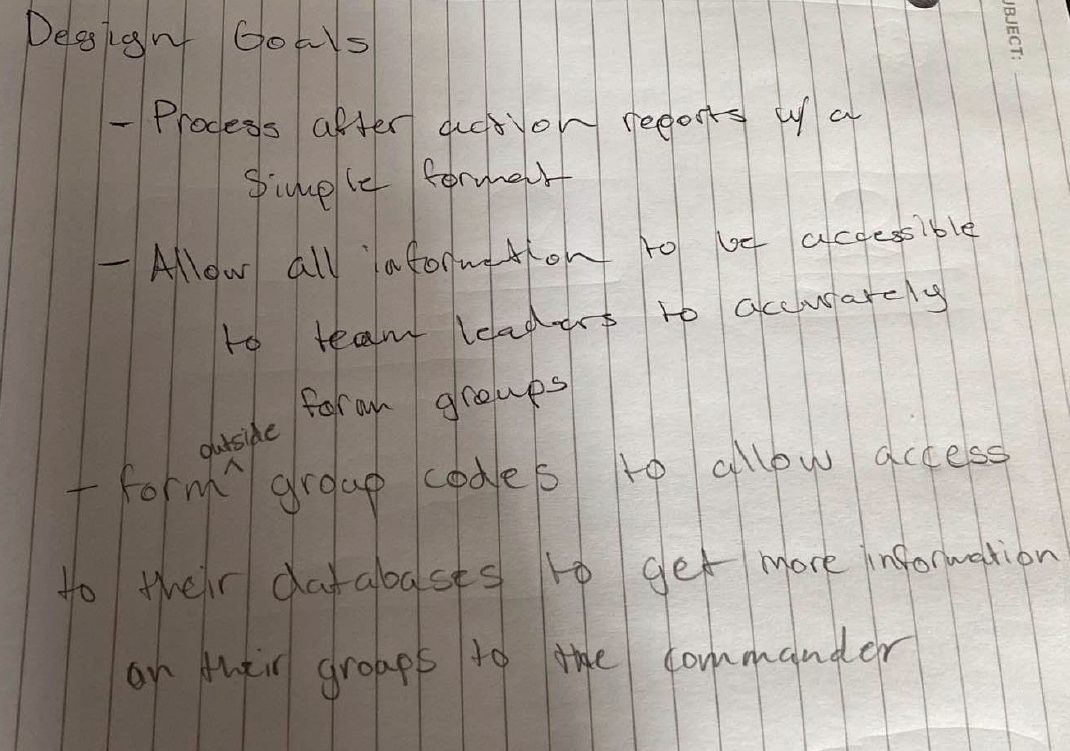 Design Goals
- Process after action reports w/ a
simple format
- Allow all information to be accessible
to team leaders to accurately
form groups
outside
- form ^ group codes to allow access
to their databases to get more information
on their groups to the commander
UBJECT: